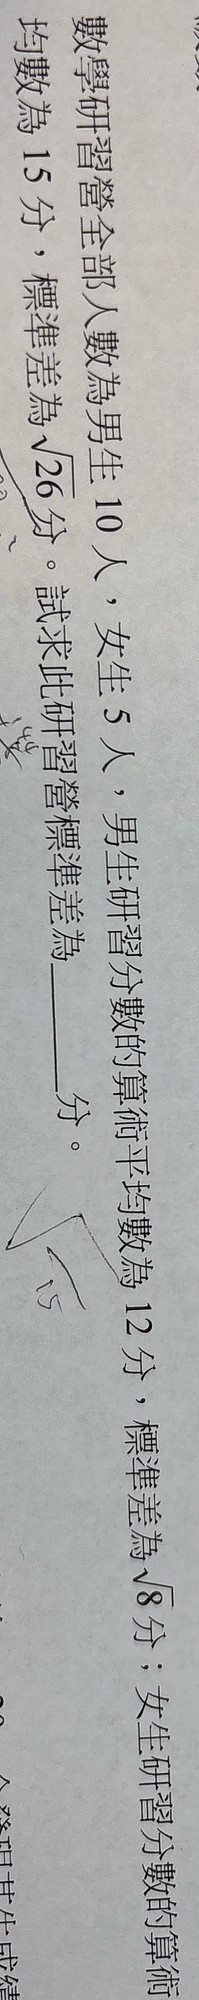 數學研習營全部人數為男生 10 人，女生 5 人，男生研習分數的算術平均數為 12 分，標準差為√8分；女生研習分數的算術
均數為 15 分，標準差為√26分。試求此研習營標準差為______分。